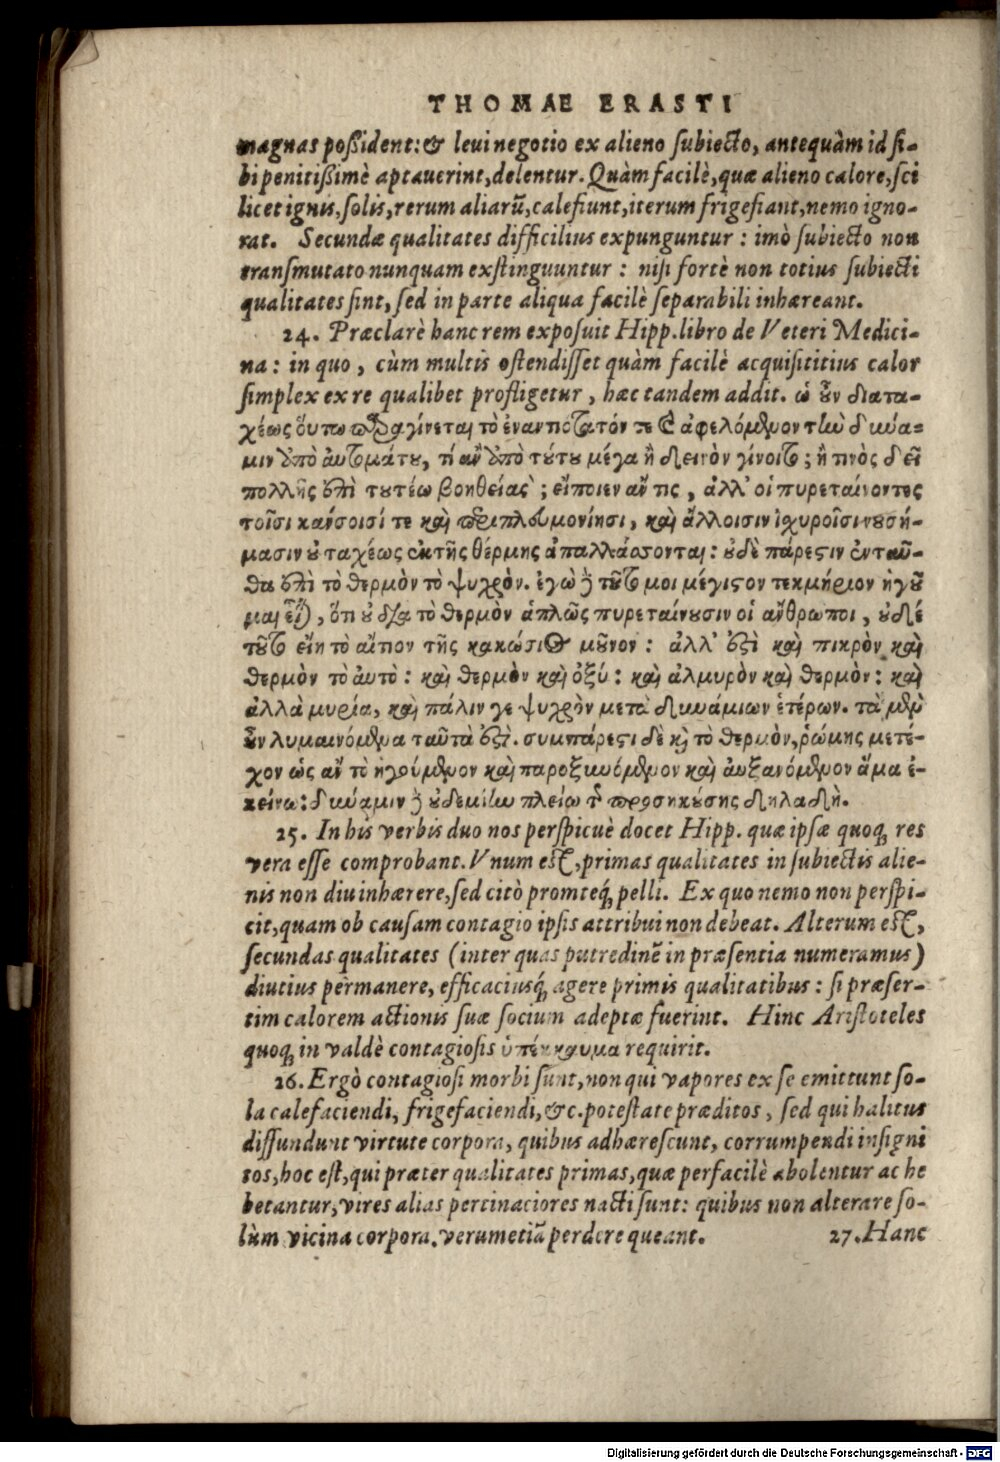 THOMAE ERASTI
magnas poßident: & leui negotio ex alieno ſubiecto, antequàm id ſi-
bi penitißimè aptauerint, delentur. Quàm facilè, quæ alieno calore, ſci
licet ignis, ſolis, rerum aliarū, calefiunt, iterum frigefiant, nemo igno-
rat. Secundæ qualitates difficilius expunguntur: imò ſubiecto non
tranſmutato nunquam exſtinguuntur: niſi fortè non totius ſubiecti
qualitates ſint, ſed in parte aliqua facilè ſeparabili inhæreant.
24. Præclarè hanc rem expoſuit Hipp. libro de Veteri Medici-
na: in quo, cùm multis oſtendiſſet quàm facilè acquiſititius calor
ſimplex ex re qualibet profligetur, hæc tandem addit. ὡ οὖν διατα-
χέως οὕτω παραγίνεται τὸ ἐναντιότατόν τε καὶ ἀφελόμενον τὴν δύνα-
μιν ὑπὸ αὐτομάτου, τί ἂν ὑπὸ τούτου μέγα ἢ δεινὸν γίνοιτο; ἢ τινὸς δεῖ
πολλῆς ἐπὶ τουτέω βοηθείας; εἴποιεν ἄν τις, ἀλλ' οἱ πυρεταίνοντες
τοῖσι καύσοισί τε καὶ περιπλευμονίησι, καὶ ἄλλοισιν ἰχυροῖσι νουσή-
μασιν οὐ ταχέως ἐκ τῆς θέρμης ἀπαλλάσσονται: οὐδὲ πάρεστιν ἐνταῦ-
θα ἐπὶ τὸ θερμὸν τὸ ψυχρὸν. ἐγὼ δὲ τοῦτο μοι μέγιστον τεκμήριον ἡγοῦ
μαι εἶναι, ὅτι οὐ διὰ τὸ θερμὸν ἁπλῶς πυρεταίνουσιν οἱ ἄνθρωποι, οὐδέ
τοῦτο εἴη τὸ αἴτιον τῆς κακώσιος μοῦνον: ἀλλ' ἐστὶ καὶ πικρὸν καὶ
θερμὸν τὸ ἀυτὸ: καὶ θερμὸν καὶ ὀξύ: καὶ ἁλμυρὸν καὶ θερμὸν: καὶ
ἀλλὰ μυρία, καὶ πάλιν γε ψυχρὸν μετὰ δυνάμιων ἑτέρων. τὰ μὲν
οὖν λυμαινόμενα ταῦτὰ ἐστὶ. συμπάρεστι δὲ καὶ τὸ θερμὸν, ῥώμης μετέ-
χον ὡς ἂν τὸ ἡγούμενον καὶ παροξυνόμενον καὶ ἀυξανόμενον ἅμα ἐ-
κείνω: δύναμιν δὲ οὐδεμίην πλείω τῆς προσηκούσης δηλαδὴ.
25. In his verbis duo nos perſpicuè docet Hipp. quæ ipſæ quoq; res
vera eſſe comprobant. Vnum eſt, primas qualitates in ſubiectis alie-
nis non diu inhærere, ſed citò promteq́; pelli. Ex quo nemo non perſpi-
cit, quam ob cauſam contagio ipſis attribui non debeat. Alterum eſt,
ſecundas qualitates (inter quas putredinē in præſentia numeramus)
diutius permanere, efficaciusq́; agere primis qualitatibus: ſi præſer-
tim calorem actionis ſuæ ſocium adeptæ fuerint. Hinc Ariſtoteles
quoq; in valdè contagioſis ὑπέκκαυμα requirit.
26. Ergò contagioſi morbi ſunt, non qui vapores ex ſe emittunt ſo-
la calefaciendi, frigefaciendi, &c. poteſtate præditos, ſed qui halitus
diffundunt virtute corpora, quibus adhæreſcunt, corrumpendi inſigni
tos, hoc eſt, qui præter qualitates primas, quæ perfacilè abolentur ac he
betantur, vires alias pertinaciores nacti ſunt: quibus non alterare ſo-
lùm vicina corpora, verumetiā perdere queant. 27. Hanc
Digitalisierung gefördert durch die Deutsche Forschungsgemeinschaft - DFG